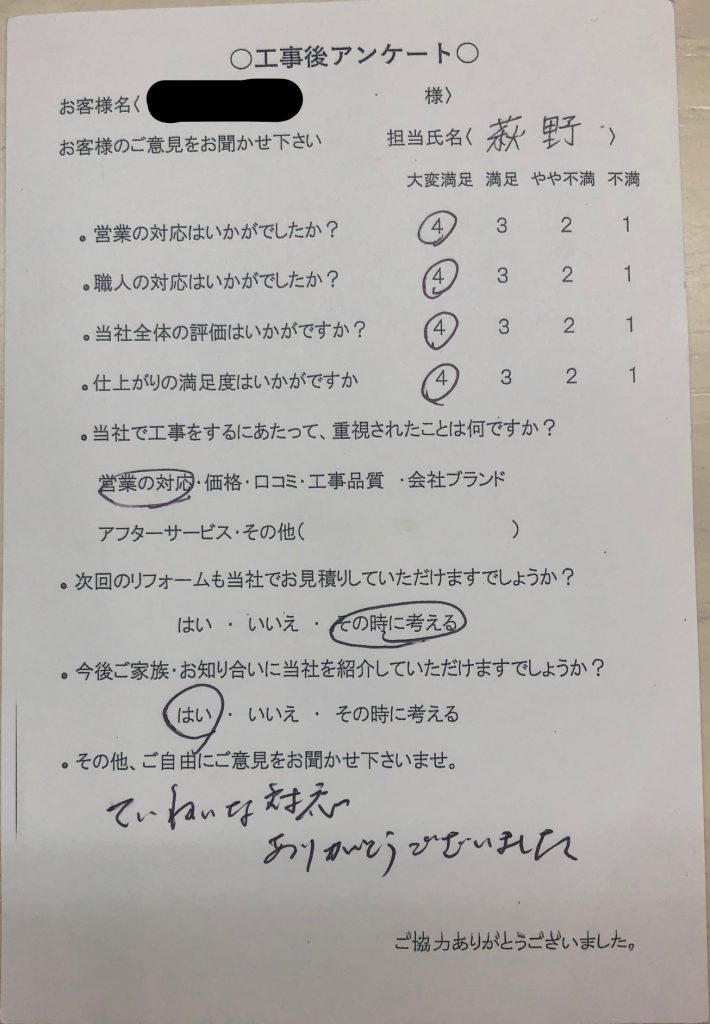 ○工事後アンケート○
お客様名〈 様〉
お客様のご意見をお聞かせ下さい 担当氏名〈 萩野 〉
大変満足 満足 やや不満 不満
・営業の対応はいかがでしたか? 4 3 2 1
・職人の対応はいかがでしたか? 4 3 2 1
・当社全体の評価はいかがですか? 4 3 2 1
・仕上がりの満足度はいかがですか 4 3 2 1
・当社で工事をするにあたって、重視されたことは何ですか?
営業の対応・価格・口コミ・工事品質 ・会社ブランド
アフターサービス・その他( )
・次回のリフォームも当社でお見積りしていただけますでしょうか?
はい ・ いいえ ・ その時に考える
・今後ご家族・お知り合いに当社を紹介していただけますでしょうか?
はい ・ いいえ ・ その時に考える
・その他、ご自由にご意見をお聞かせ下さいませ。
ていねいな対応
ありがとうございました
ご協力ありがとうございました。